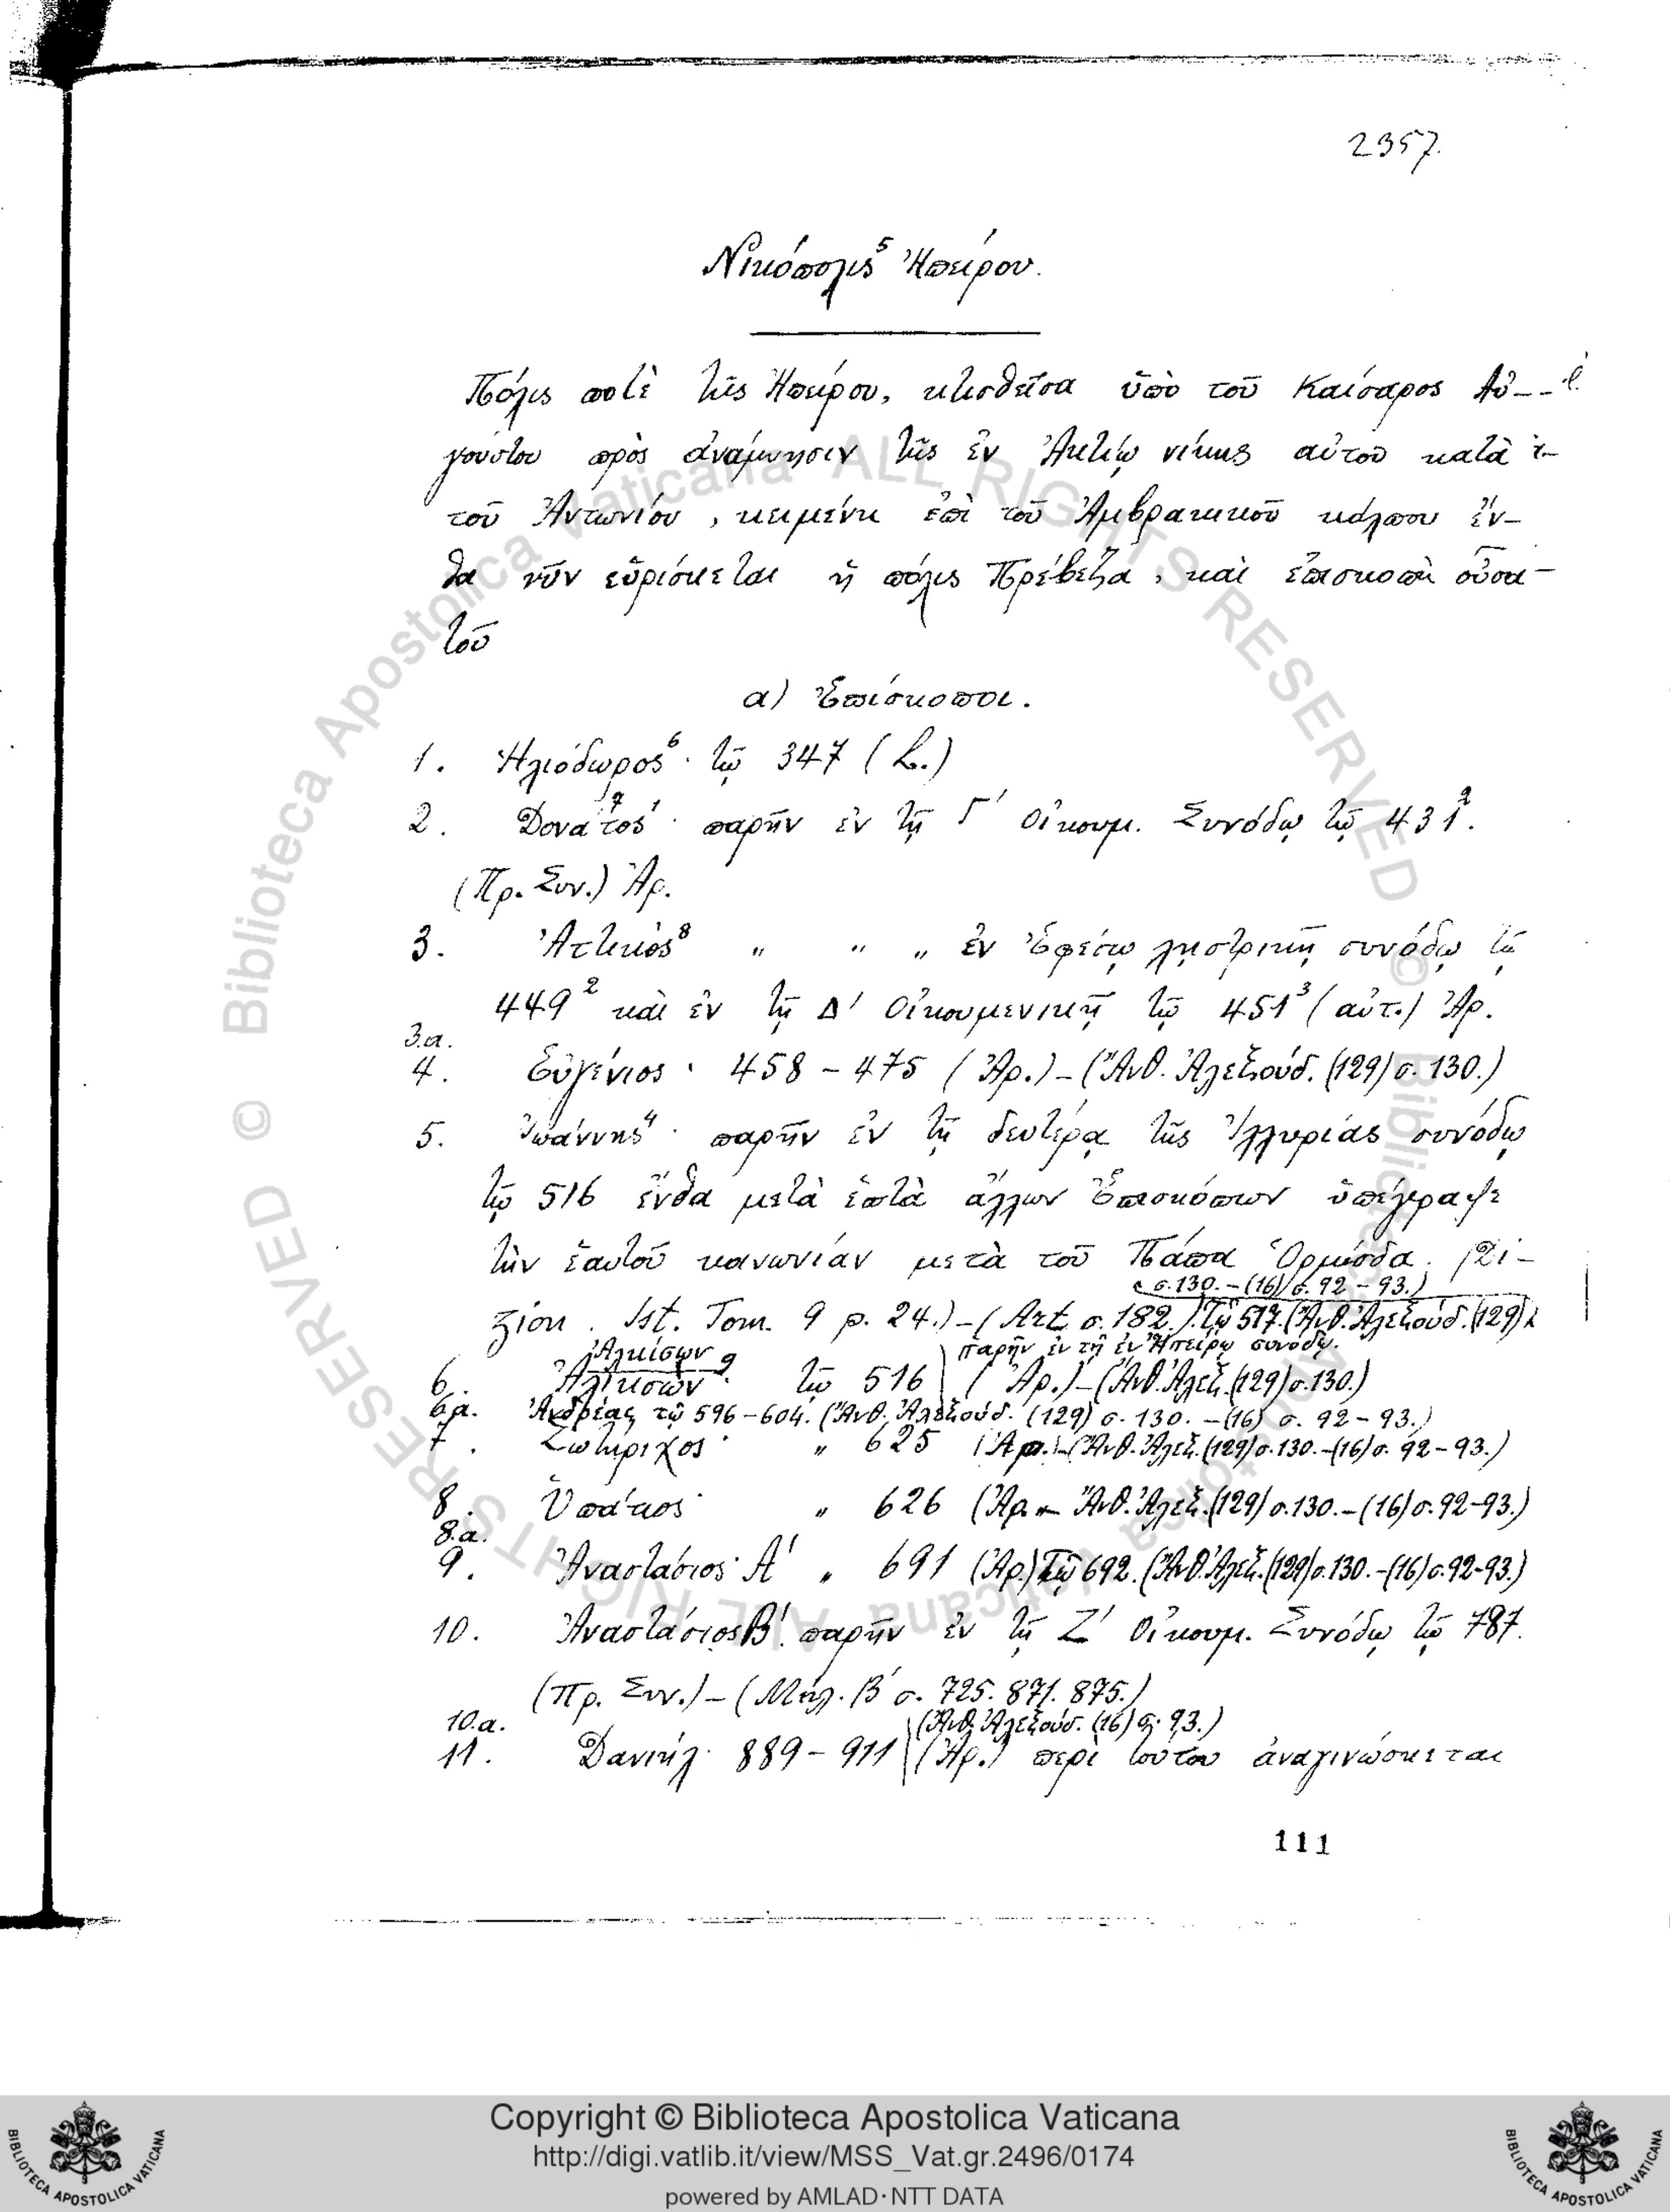 2357.
Νικόπολις⁵ Ἠπείρου.
Πόλις ποτὲ τῆς Ἠπείρου, κτισθεῖσα ὑπὸ τοῦ Καίσαρος Αὐ-
γούστου πρὸς ἀνάμνησιν τῆς ἐν Ἀκτίῳ νίκης αὐτοῦ κατὰ
τοῦ Ἀντωνίου, κειμένη ἐπὶ τοῦ Ἀμβρακικοῦ κόλπου ἔν-
θα νῦν εὑρίσκεται ἡ πόλις Πρέβεζα, καὶ ἐπισκοπὴ οὖσα
τοῦ
α) Ἐπίσκοποι.
1. Ἡλιόδωρος⁶· τῷ 347 (L.)
2. Δονάτος⁷ ¹· παρῆν ἐν τῇ Γ' Οἰκουμ. Συνόδῳ τῷ 431.
(Πρ. Συν.) Ἀρ.
3. Ἀττικός⁸ " " " ἐν Ἐφέσῳ λῃστρικῇ συνόδῳ τῷ
449² καὶ ἐν τῇ Δ' Οἰκουμενικῇ τῷ 451³ (αὐτ.) Ἀρ.
3.α.
4. Εὐγένιος· 458 – 475 (Ἀρ.) – (Ἄνθ. Ἀλεξούδ. (129) σ. 130.)
5. Ἰωάννης⁴· παρῆν ἐν τῇ δευτέρᾳ τῆς Ἰλλυρίας συνόδῳ
τῷ 516 ἔνθα μετὰ ἑπτὰ ἄλλων Ἐπισκόπων ὑπέγραψε
τὴν ἑαυτοῦ κανωνίαν μετὰ τοῦ Πάπα Ὁρμίσδα.
σ. 130. – (16) σ. 92 – 93.)
Ist. Tom. 9 p. 24.) – (Art σ. 182.) Τῷ 517. (Ἄνθ. Ἀλεξούδ. (129)
παρῆν ἐν τῇ ἐν Ἠπείρῳ συνόδῳ.
Ἀλκίσων
6. Ἀλικισών⁹· τῷ 516 (Ἀρ.) – (Ἄνθ. Ἀλεξ. (129) σ. 130.)
6α. Ἀνδρέας τῷ 596 – 604. (Ἄνθ. Ἀλεξούδ. (129) σ. 130. – (16) σ. 92 – 93.)
7. Σωτήριχος· " 625 (Ἀρ.) – (Ἄνθ. Ἀλεξ. (129) σ. 130. – (16) σ. 92 – 93.)
8. Ὑπάτιος· " 626 (Ἀρ. – Ἄνθ. Ἀλεξ. (129) σ. 130. – (16) σ. 92-93.)
8.α.
9. Ἀναστάσιος· Α' " 691 (Ἀρ.) Τῷ 692. (Ἄνθ. Ἀλεξ. (129) σ. 130. – (16) σ. 92-93.)
10. Ἀναστάσιος Β'. παρῆν ἐν τῇ Ζ' Οἰκουμ. Συνόδῳ τῷ 787.
(Πρ. Συν.) – (Μηλ. Β' σ. 725. 871. 875.)
10.α. (Ἄνθ. Ἀλεξούδ. (16) σ. 93.)
11. Δανιήλ· 889 – 911 (Ἀρ.) περὶ τούτου ἀναγινώσκεται
111
© Biblioteca Apostolica Vaticana ALL RIGHTS RESERVED
© Biblioteca Apostolica Vaticana ALL RIGHTS RESERVED
Copyright © Biblioteca Apostolica Vaticana
http://digi.vatlib.it/view/MSS_Vat.gr.2496/0174
powered by AMLAD·NTT DATA
BIBLIOTECA APOSTOLICA VATICANA
BIBLIOTECA APOSTOLICA VATICANA